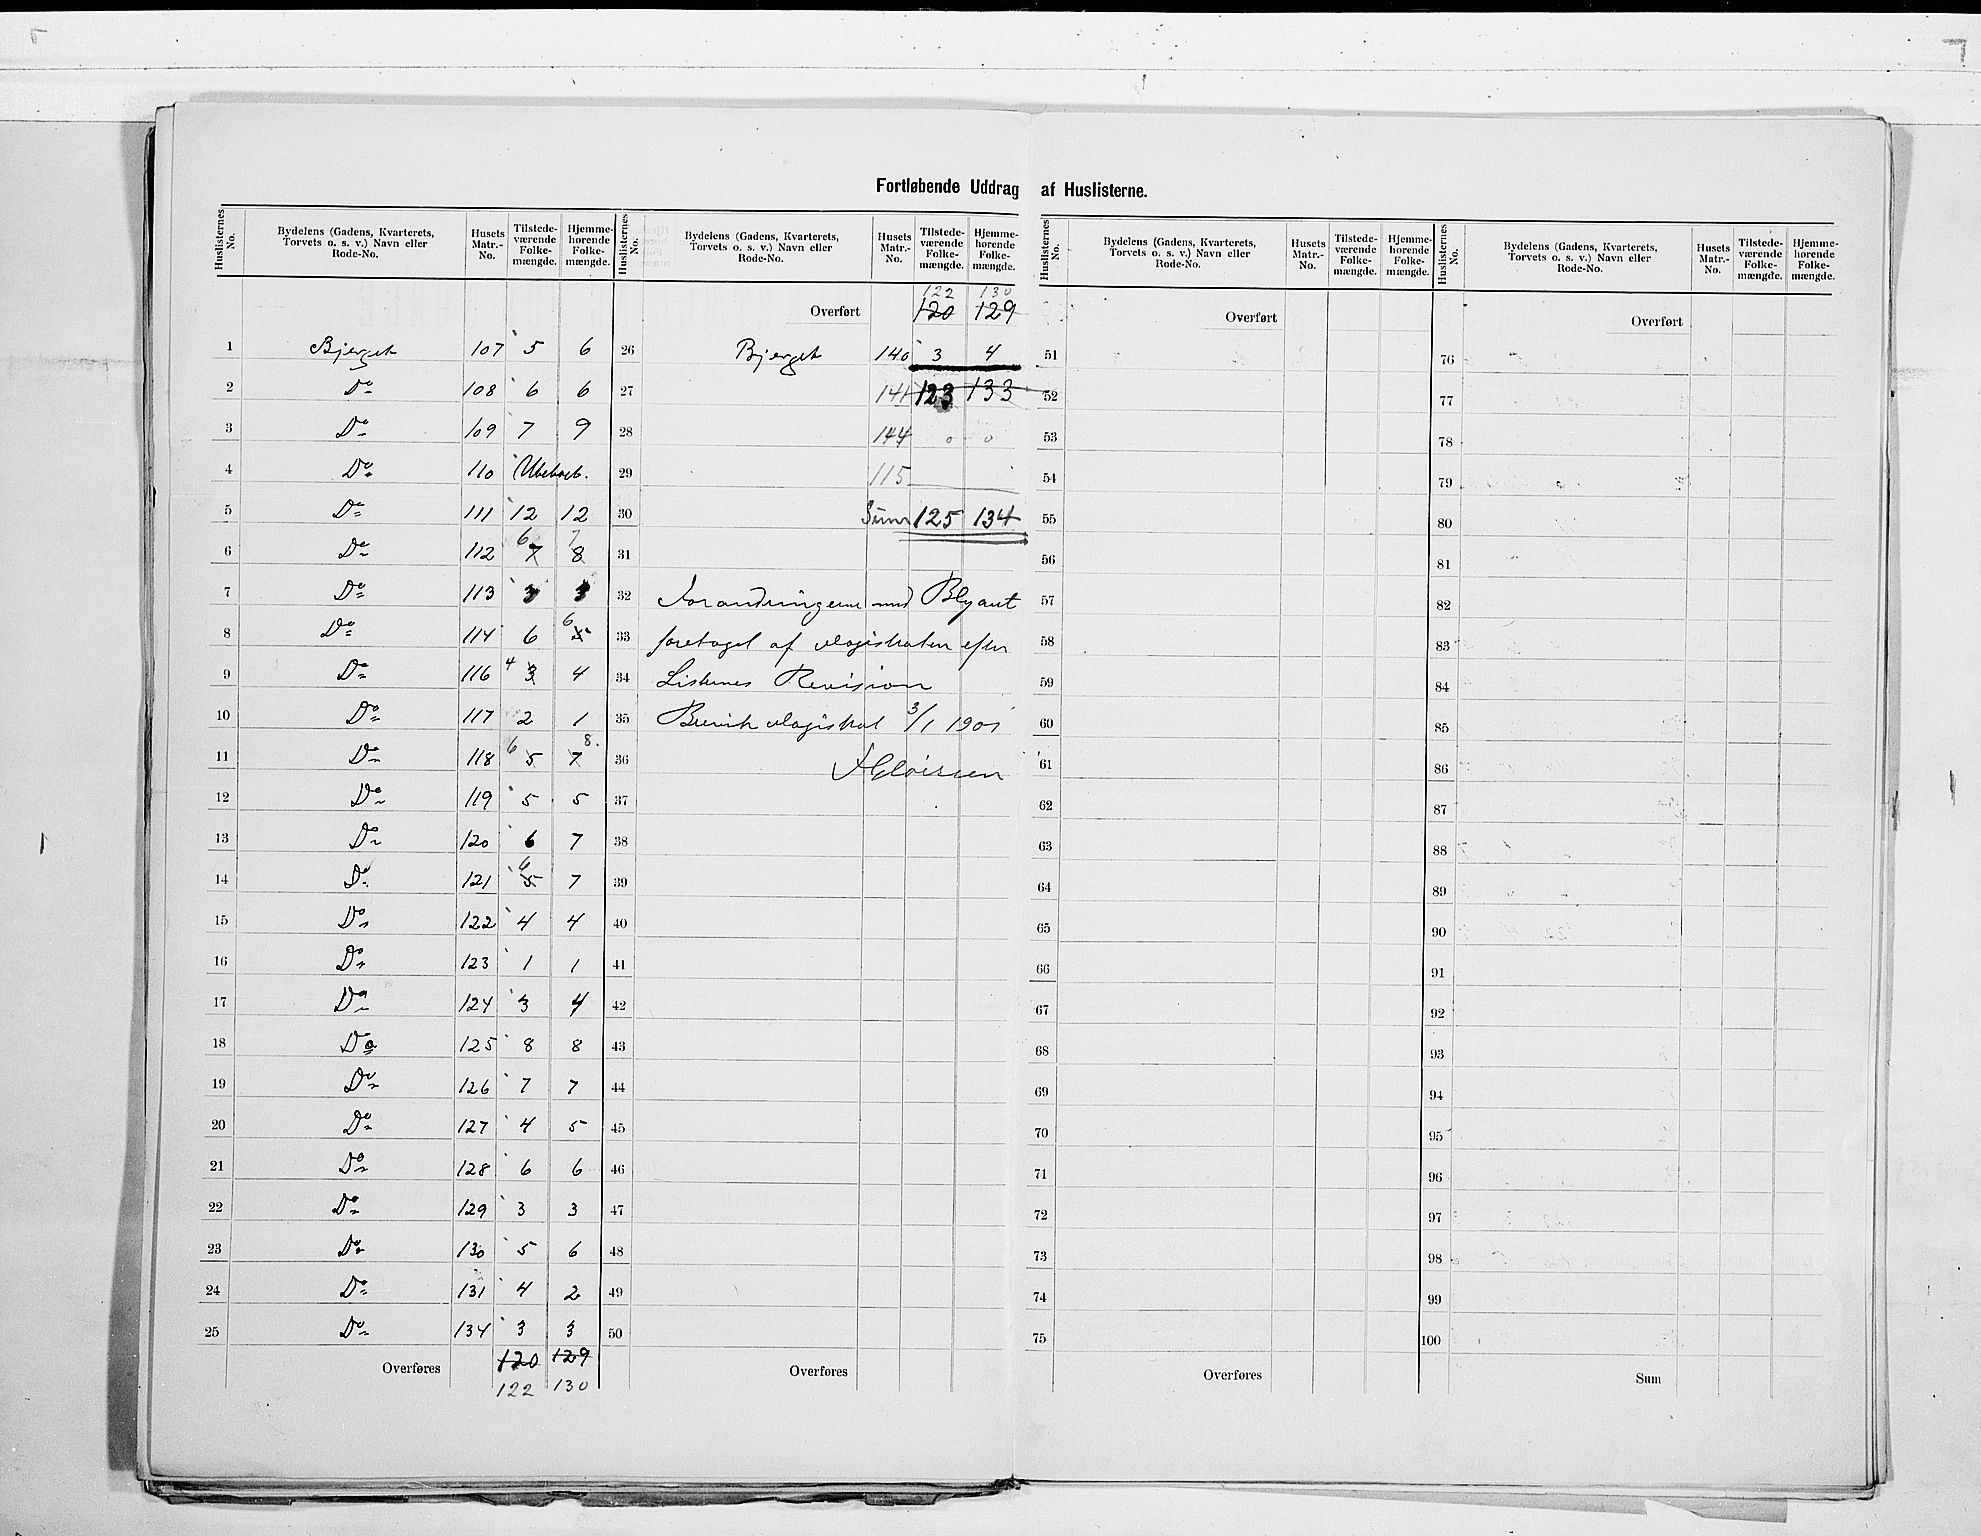 Fortløbende Uddrag af Huslisterne.
Huslisternes No. Bydelens (Gadens, Kvarterets, Torvets o. s. v.) Navn eller Rode-No. Husets Matr.-No. Tilstede-værende Folke-mængde. Hjemme-hørende Folke-mængde.
1 Bjerget 107 5 6
2 Do 108 6 6
3 Do 109 7 9
4 Do 110 Ubeboet.
5 Do 111 12 12
6 Do 112 6 7 7 8
7 Do 113 3 3
8 Do 114 6 6 5
9 Do 116 4 3 4
10 Do 117 2 1
11 Do 118 6 5 8. 7
12 Do 119 5 5
13 Do 120 6 7
14 Do 121 6 5 7
15 Do 122 4 4
16 Do 123 1 1
17 Do 124 3 4
18 Do 125 8 8
19 Do 126 7 7
20 Do 127 4 5
21 Do 128 6 6
22 Do 129 3 3
23 Do 130 5 6
24 Do 131 4 2
25 Do 134 3 3
Overføres 120 129
122 130
Huslisternes No. Bydelens (Gadens, Kvarterets, Torvets o. s. v.) Navn eller Rode-No. Husets Matr.-No. Tilstede-værende Folke-mængde. Hjemme-hørende Folke-mængde.
122 130
Overført 120 129
26 Bjerget 140 3 4
27 141 123 133
28 144 0 0
29 115
30 Sum 125 134
31
32 Forandringerne med Blyant
33 foretaget af Magistraten efter
34 Listernes Revision
35 Brevik Magistrat 3/1 1901
36
37
38
39
40
41
42
43
44
45
46
47
48
49
50
Overføres
Huslisternes No. Bydelens (Gadens, Kvarterets, Torvets o. s. v.) Navn eller Rode-No. Husets Matr.-No. Tilstede-værende Folke-mængde. Hjemme-hørende Folke-mængde.
Overført
51
52
53
54
55
56
57
58
59
60
61
62
63
64
65
66
67
68
69
70
71
72
73
74
75
Overføres
Huslisternes No. Bydelens (Gadens, Kvarterets, Torvets o. s. v.) Navn eller Rode-No. Husets Matr.-No. Tilstede-værende Folke-mængde. Hjemme-hørende Folke-mængde.
Overført
76
77
78
79
80
81
82
83
84
85
86
87
88
89
90
91
92
93
94
95
96
97
98
99
100
Sum